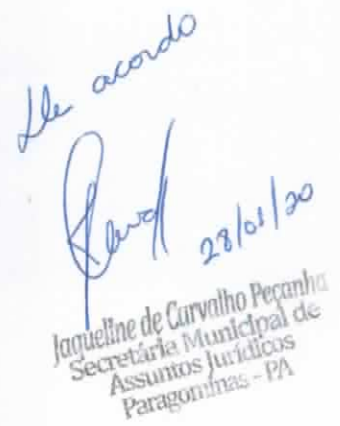 De acordo
28/01/20
Jaqueline de Carvalho Peçanha
Secretária Municipal de
Assuntos Jurídicos
Paragominas - PA